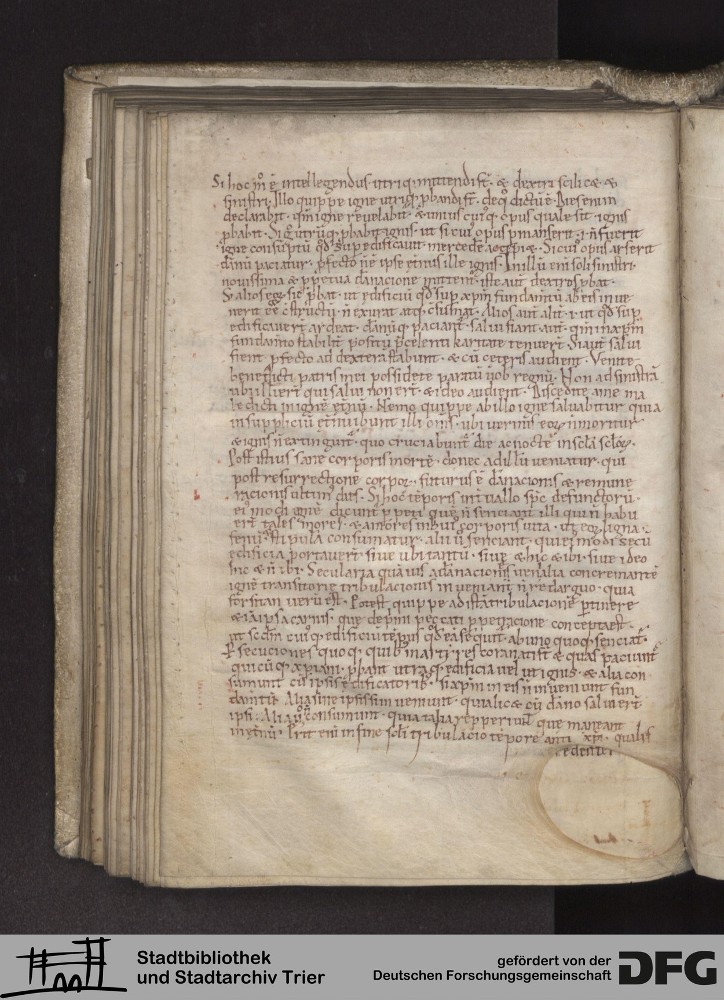 Si hoc m̊ ē intellegendus utriq· mittendi st̄· & dextri scilicæ &
sinistri· Illo quippe igne utriq· p̱bandi st̄· de q̊ dictū ē· Dies enim
declarabit· qm̄ igne revelabit̄ & unius cuiq· opus quale sit ignis
p̱babit· Si g̊ utrūq· p̱babit ignis· ut si cui' opus p̱manserit· i· n̄ fuerit
igne consūptū qd̄ sup edificavit mercedē accipiæ· Si cui' opus arserit
dānū paciatur· p̱fecto n̄ ē ipse et̄nus ille ignis· In illū eni soli sinistri
novissima & p̱petua dānacione mittent̄· iste aut̄ dextros p̱bat·
Sȝ alios eoȝ sic p̱bat· ut edificiū qd̄ sup xp̄m fundam̄tū ab eis inve
nerit eē c̄structū n̄ exurat atq· c̄sumat· Alios aut̄ alit̄· i· ut qd̄ sup
edificaver̄t ardeat· dānūq· paciant̄· salvi fiant aut̄· qm̄ in xp̄m
fundam̄to stabilit̄ positū p̱cellenti karitate tenuer̄t· Si aut̄ salvi
fient p̱fecto ad dexterā stabunt· & cū ceteris audient· Venite
benedicti patris mei possidete paratū vob regnū· Non ad sinistrā
ubi illi er̄t qui salvi non er̄t· & ideo audient· Discedite a me ma
ledicti in ignē et̄nū· Nemo quippe ab illo igne salvabitur quia
in suppliciū et̄nū ibunt illi om̄s· ubi vermis eoȝ n̄ moritur
& ignis n̄ extinguit̄· quo cruciabunt̄ die ac nocte in sc̄la sc̄loȝ·
Post istius sane corporis mortē· donec ad illū veniatur· qui
post resurrectionē corpoȝ· futurus ē dānacionis & remune
racionis ultim' dies· Si hoc tēporis intvallo spc̄ defunctorū·
ei' modi ignē dicunt̄ p̱peti quē n̄ senciant illi qui n̄ habu
er̄t tales mores· & amores in hui' corporis vita· ut eoȝ ligna·
fenū· stipula consumatur· alii ū senciant quiei'modi secū
edificia portaver̄t· sive ubi tantū· sive & hic & ibi· sive ideo
hic & n̄ ibi· Secularia quāvis a dānacionis venialia concremantē
ignē transitorie tribulacionis inveniant· n̄ redarguo· quia
forsitan verū est· Potest quippe ad istā tribulacionē p̱tinere
& iā ipsa carnis· que de p̱mi peccati p̱p̱etracione concepta est·
ut sc̄dm cui'q· edificiū tēpus qd̄ eā sequit̄· ab uno quoq· senciat̄·
P̱secuciones quoq· quib martires coronati st̄· & quas paciunt̄
quicūq· xp̄iani· p̱bant utraq· edificia velut ignis· & alia con
sumunt cū ipsis edificatorib· si xp̄m in eis n̄ inveniunt fun
dam̄tū· Alia sine ipsis si inveniunt· quia licæ cū dāno salvi er̄t
ipsi· Alia ū n̄ consumunt· quia talia repperiunt que maneant
in et̄nū· Erit eni in fine scl̄i tribulacio tēpore anti xp̄i· qualis
Stadtbibliothek
und Stadtarchiv Trier
gefördert von der
Deutschen Forschungsgemeinschaft
DFG